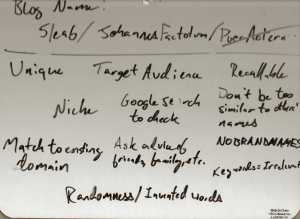 Blog Name:
Sleab/ Johannes Factotum/
Unique Target Audience Recallable
Niche Google Search to check Don't be too similar to others' names
Match to existing domain Ask advice of friends, family, etc. NO BRAND NAMES
Keywords = Irrelevant
Randomness/ Invented words